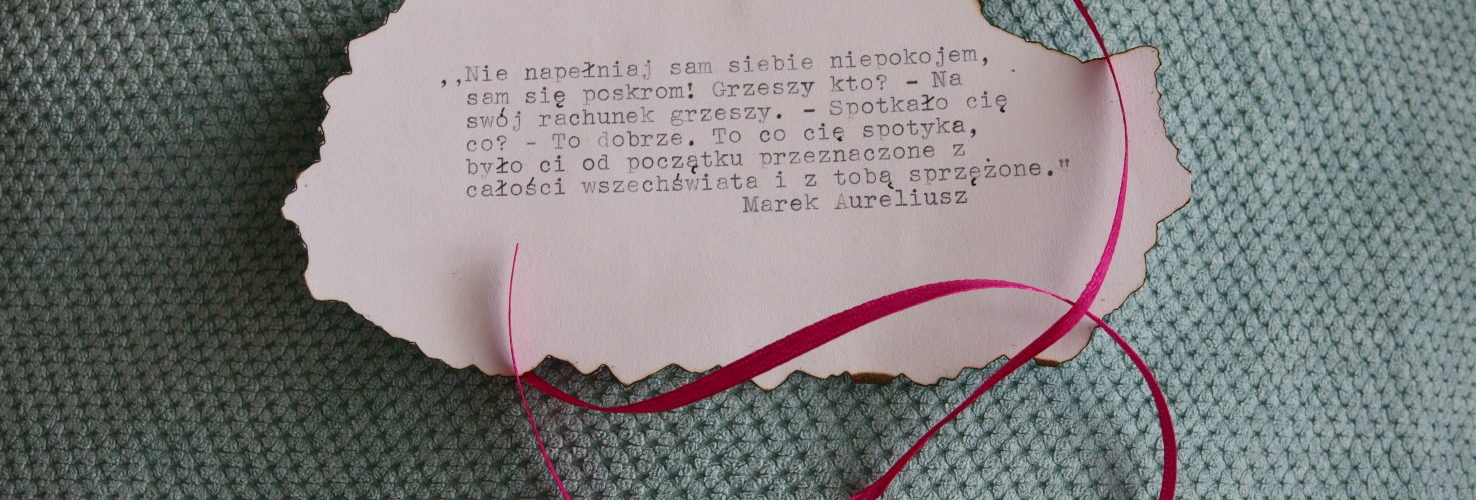 ,,Nie napełniaj sam siebie niepokojem,
sam się poskrom! Grzeszy kto? - Na
swój rachunek grzeszy. - Spotkało cię
co? - To dobrze. To co cię spotyka,
było ci od początku przeznaczone z
całości wszechświata i z tobą sprzężone."
Marek Aureliusz